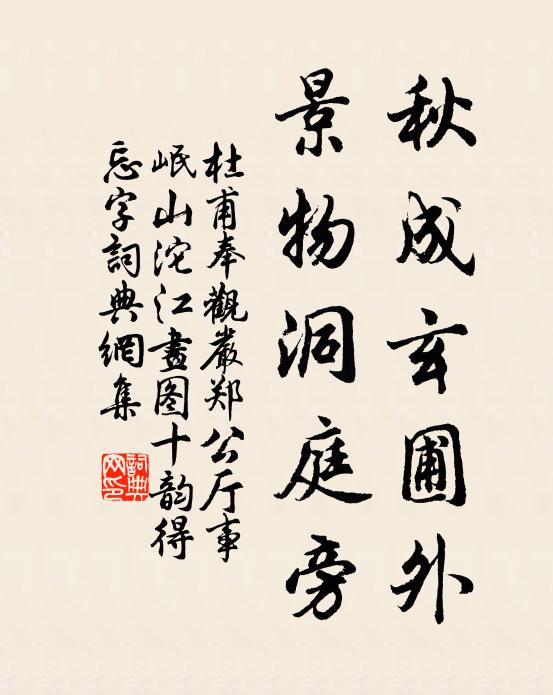 秋成玄圃外
景物洞庭旁
杜甫奉觀嚴郑公厅事
岷山沱江畫图十韵得
忘字詞典網集
詞典
网印